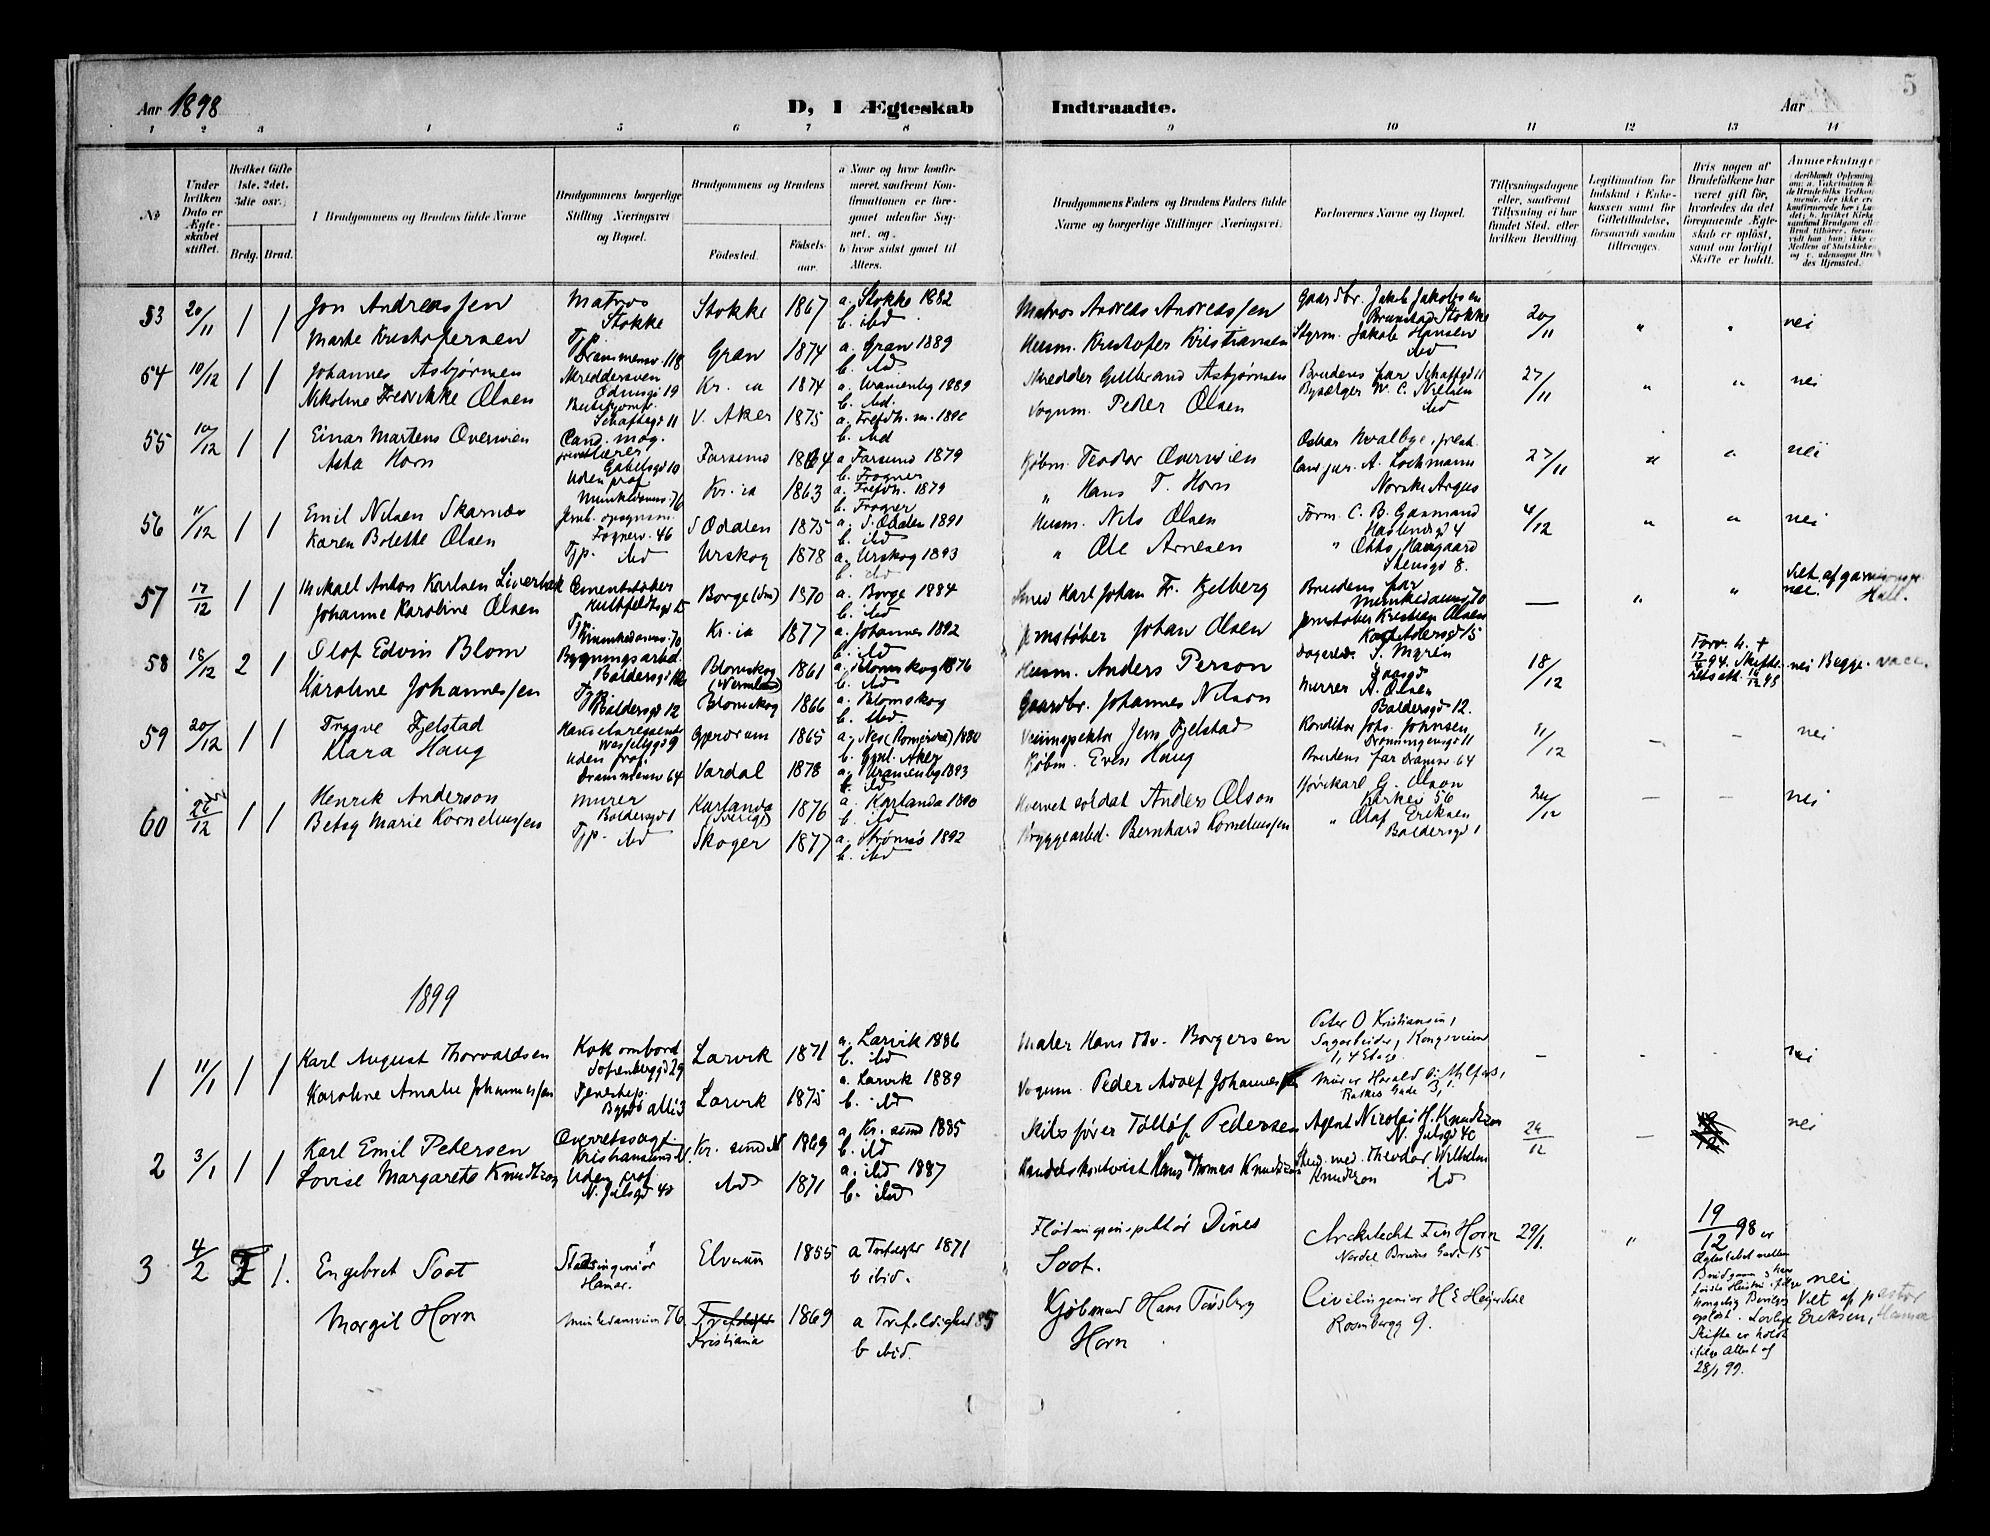 5
Aar 1898
D, 1 Ægteskab Indtraadte.
Aar
1 2 3 4 5 6 7 8 9 10 11 12 13 14
No
Under hvilken Dato er Ægteskabet stiftet.
Hvilket Gifte 1ste. 2det. 3die osv.
Brdg. Brud.
1 Brudgommens og Brudens fulde Navne
Brudgommens borgerlige Stilling Næringsvei og Bopæl.
Brudgommens og Brudens
Födested. Födselsaar.
a Naar og hvor konfirmeret, saafremt Konfirmationen er foregaaet udenfor Sognet, og.
b hvor sidst gaaet til Alters.
Brudgommens Faders og Brudens Faders fulde Navne og borgerlige Stillinger Næringsvei.
Forlovernes Navne og Bopæl.
Tillysningsdagene eller, saafremt Tillysning ei har fundet Sted, efter hvilken Bevilling.
Legitimation for Indskud i Enkekassen samt for Giftetilladelse, forsaavidt saadan tiltrænges.
Hvis nogen af Brudefolkene har været gift før, hvorledes da det foregaaende Ægteskab er oplöst, samt om lovligt Skifte er holdt.
Anmerkninger
53 20/11 1 1 Jon Andreassen Matros Stokke Stokke 1867 a. Stokke 1882 b. ibd Matros Andreas Andreassen Gaardbr. Jakob Jakobsen Brunstad Stokke 20/11 " " nei
Marte Kristofersen Tjp. Drammensv. 118 Gran 1874 a. Gran 1889 b. ibd Husm. Kristofer Kristiansen Styrm. Jakob Hansen ibd
54 10/12 1 1 Johannes Asbjørnsen Skreddersven Odinsg 19 Kr.ia 1874 a. Uranienbg 1889 b. ibd. Skredder Gulbrand Asbjørnsen Brudens far Schaftsgd 11 27/11 " " nei
Nikoline Fredrikke Olsen Schaftsgd 11 V. Aker 1875 a. Trefdh. m. 1890 b. ibd Vognm. Peder Olsen W. C. Nielsen ibd
55 10/12 1 1 Einar Martens Overwien Cand. mag. privatlærer Gabelsgd 10 Farsund 1864 a Farsund 1879 b. Frogner Kjøbm. Teodor Overwien Oskar Hvalbye, prest 27/11 " " nei
Asta Horn Uden prof Munkedamsv. 76 Kr.ia 1863 a. Trefdh. 1879 b. Frogner " Hans T. Horn Cand jur. A. Lochmann Norske Argus
56 11/12 1 1 Emil Nilsen Skarnæs Frognerv. 46 S Odalen 1875 a. S. Odalen 1891 b. ibd Husm. Nils Olsen Form. C. B. 4/12 " " nei
Karen Bolette Olsen Tjp. ibd Urskog 1878 a. Urskog 1893 b. ibd " Ole Arnesen " Otto Haugaard Stensgd 8.
57 17/12 1 1 Mikael Anton Karlsen Cementstøber Borge 1870 a. Borge 1884 b. ibd Smed Karl Johan Fr. Kjelberg Brudens far Munkedamsv 70 — " " nei.
Johanne Karoline Olsen Tjp. Munkedamsv. 70 Kr.ia 1877 a. Johannes 1892 b. ibd Jernstøber Johan Olsen Jernstøber Kristian Olsen
58 18/12 2 1 Olof Edvin Blom Bygningsarbd. Baldersgd 12 Blomskog (Vermland) 1861 a. Blomskog 1876 b. ibd Husm. Anders Person 18/12 Forr. h. + Skifte nei Begge vacc.
Karoline Johannessen Tjp. Baldersgd 12 Blomskog 1866 a. Blomskog b. ibd Gaardbr. Johannes Nilson Murer A. Olsen Baldersgd 12.
59 20/12 1 1 Trygve Fjelstad Wesselsgd 9 Gjerdrum 1865 a. Nes (Romerike) 1880 b. Gml. Aker Veiinspektør Jens Fjelstad Konditor Johs. Johnsen Dronningensgd 11 11/12 — — nei
Klara Haug Uden prof. Drammensv 64 Vardal 1878 a. Uranienbg 1893 b. ibd Kjøbm. Even Haug Brudens far Dramsv. 64
60 26/12 1 1 Henrik Anderson Murer Baldersgd 1 Karlanda (Sverige) 1876 a. Karlanda 1890 b. ibd Hvervet soldat Anders Olson G. Olson Kirkev 56 24/12 — — nei
Betsy Marie Kornelussen Tjp. ibd Skoger 1877 a. Strømsø 1892 b. ibd Bryggearbd. Bernhard Kornelussen " Olaf Eriksen Baldersgd 1
1899
1 11/1 1 1 Karl August Thorvaldsen Kok ombord Sofienberggd 29 Larvik 1871 a. Larvik 1886 b. ibd Maler Hans Thv. Borgersen Peter O Kristiansen, Sagarbeider, Kongsveien 1, 4 Etage - - - nei
Karoline Amalie Johannessen Tjenestep. Bygdø allé 3 Larvik 1875 a. Larvik 1889 b. ibd Vognm. Peder Adolf Johannessen Murer Harald
2 3/1 1 1 Karl Emil Petersen Overretssagf. Kristiansund N. Kr. sund N 1869 a. Kr. sund 1885 b. ibd Skibsfører Tolløf Pedersen Agent Nicolai H. Knudtzon N. Julsgd 40 26/12 — nei
Lovise Margarete Knudtzon Uden prof. N. Julsgd 40 ibd 1871 a. ibd 1887 b. ibd Hans Thomas Knudtzon Stud. med. Theodor Wilhelm Knudtzon ibd
3 4/2 1. Engebret Soot Stadsingeniør Hamar. Elverum 1855 a Trefoldgh 1871 b ibid. Flødningsinspektør Dines Soot. Architecht Fin Horn Nordal Bruns Gade 15 29/1. " 19/12 98 er Ægteskabet mellem Brudgom og hans første Hustru ifølge kongelig Bevilgn opløst. Lovlige Skifte er holdt ifølge Attest af 28/1 99. nei Viet af pastor Eriksen, Hamar
Margit Horn Munkedamsveien 76 Kristiania 1869 a Trefoldighed 85 b ibid. Kjøbmand Hans Tønsberg Horn Civilingeniør H E Heyerdahl Rosenbergg 9.